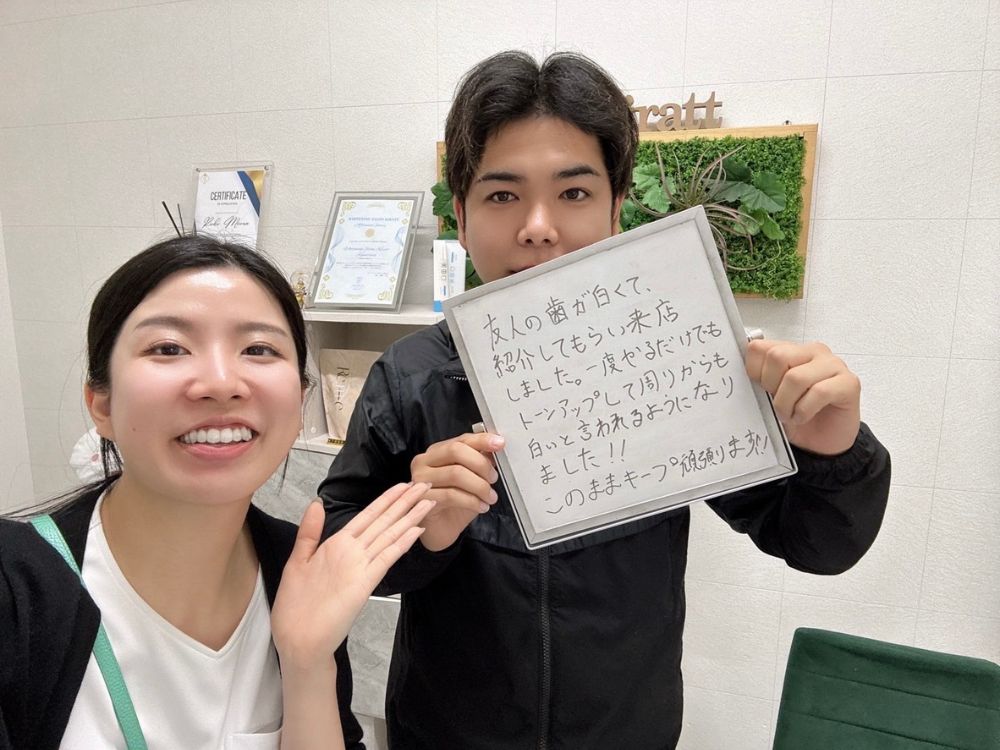 iratt
CERTIFICATE
友人の歯が白くて、
紹介してもらい来店
しました。一度やるだけでも
トーンアップして周りからも
白いと言われるようになり
ました!!
このままキープ頑張ります!!